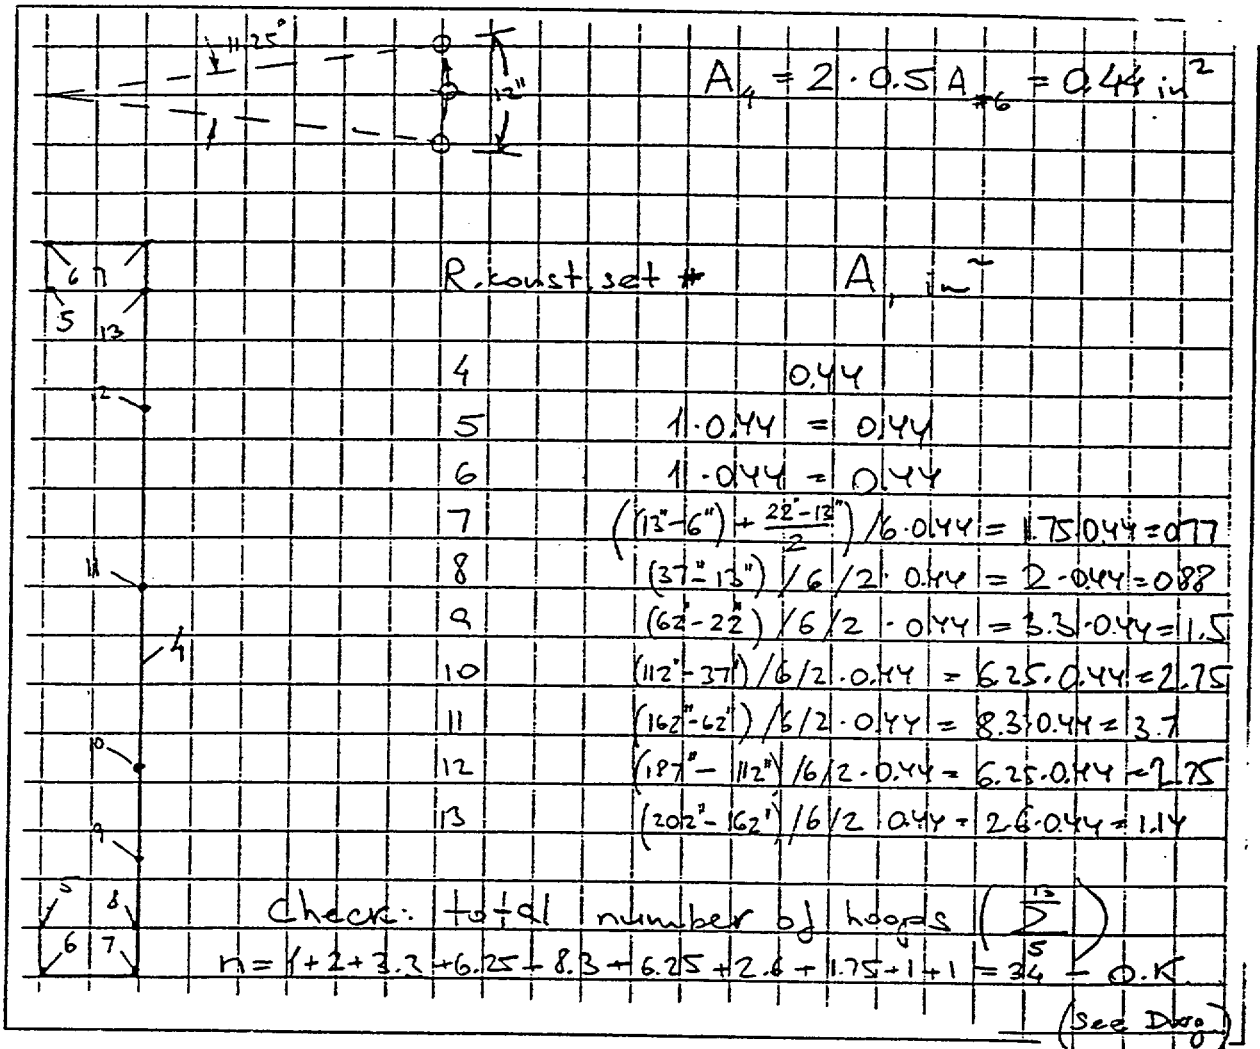 11.25°
12"
A₄ = 2 · 0.5 A#6 = 0.44 in²
6 7
5 13
12
11
4
10
9
5 8
6 7
R. const. set # A, in²
4 0.44
5 1 · 0.44 = 0.44
6 1 · 0.44 = 0.44
7 ((13"-6") + (22"-13")/2) /6 · 0.44 = 1.75 · 0.44 = 0.77
8 (37"-13") /6 /2 · 0.44 = 2 · 0.44 = 0.88
9 (62"-22") /6 /2 · 0.44 = 3.3 · 0.44 = 1.5
10 (112"-37") /6 /2 · 0.44 = 6.25 · 0.44 = 2.75
11 (162"-62") /6 /2 · 0.44 = 8.3 · 0.44 = 3.7
12 (187"-112") /6 /2 · 0.44 = 6.25 · 0.44 = 2.75
13 (202"-162") /6 /2 · 0.44 = 2.6 · 0.44 = 1.14
Check: total number of hoops (∑ 13 5)
n = 1+2+3.3+6.25+8.3+6.25+2.6+1.75+1+1 = 34 - O.K.
(See Dwg)